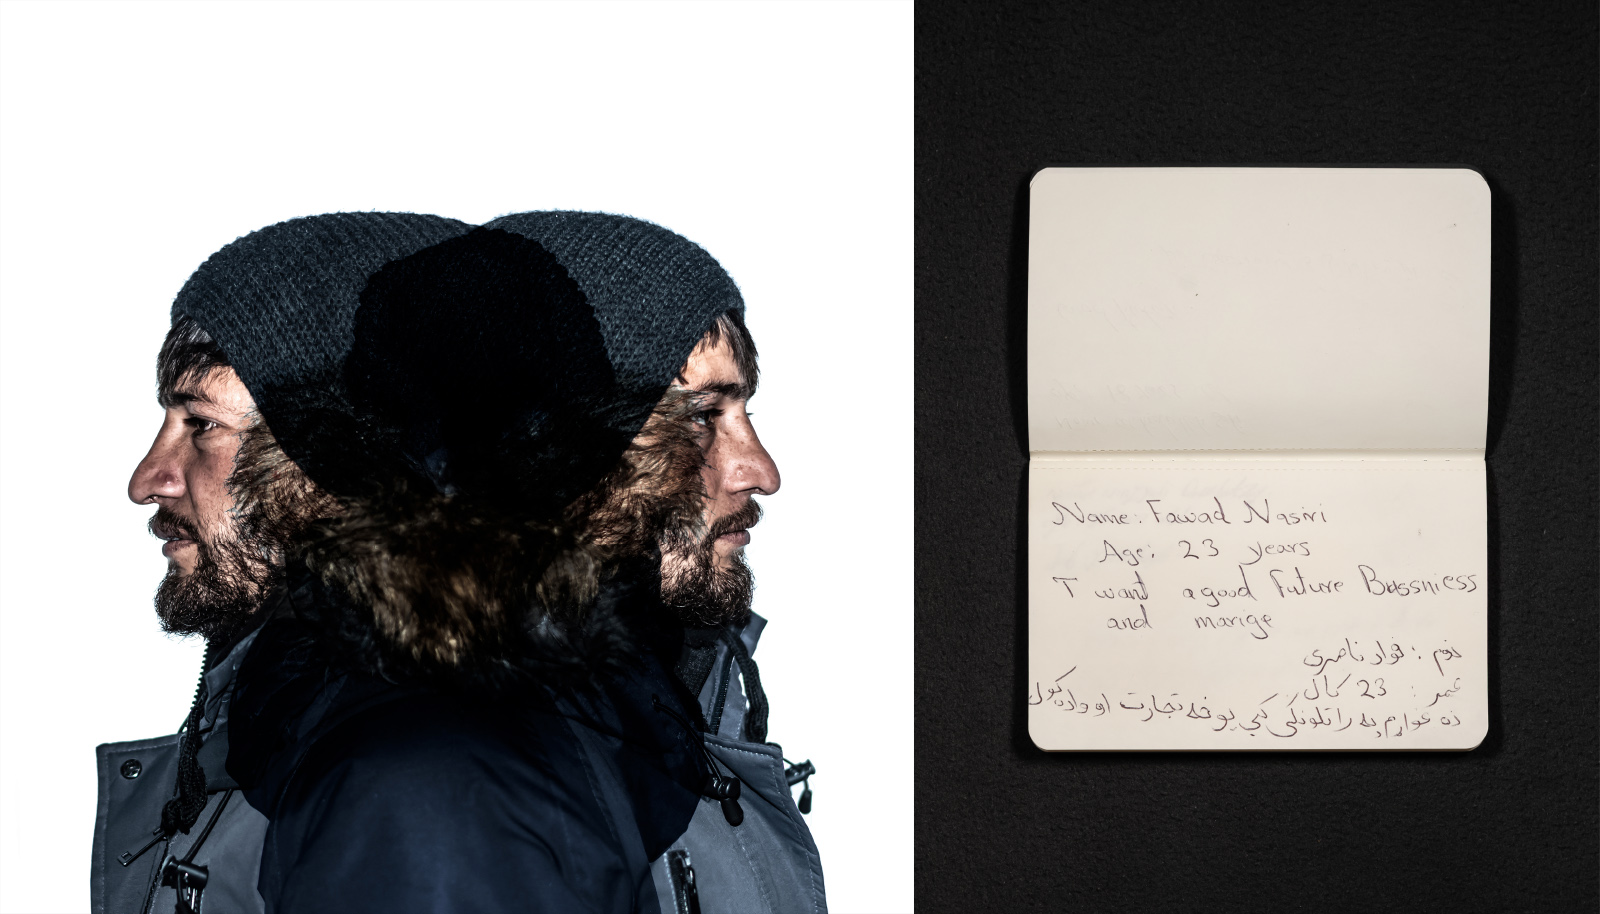 Name: Fawad Nasiri
Age: 23 years
I want a good Future Bussniess
and marige
نوم : فواد ناصری
عمر : 23 کال
زه غواړم په راتلونکی کې یو ښه تجارت او واده کول